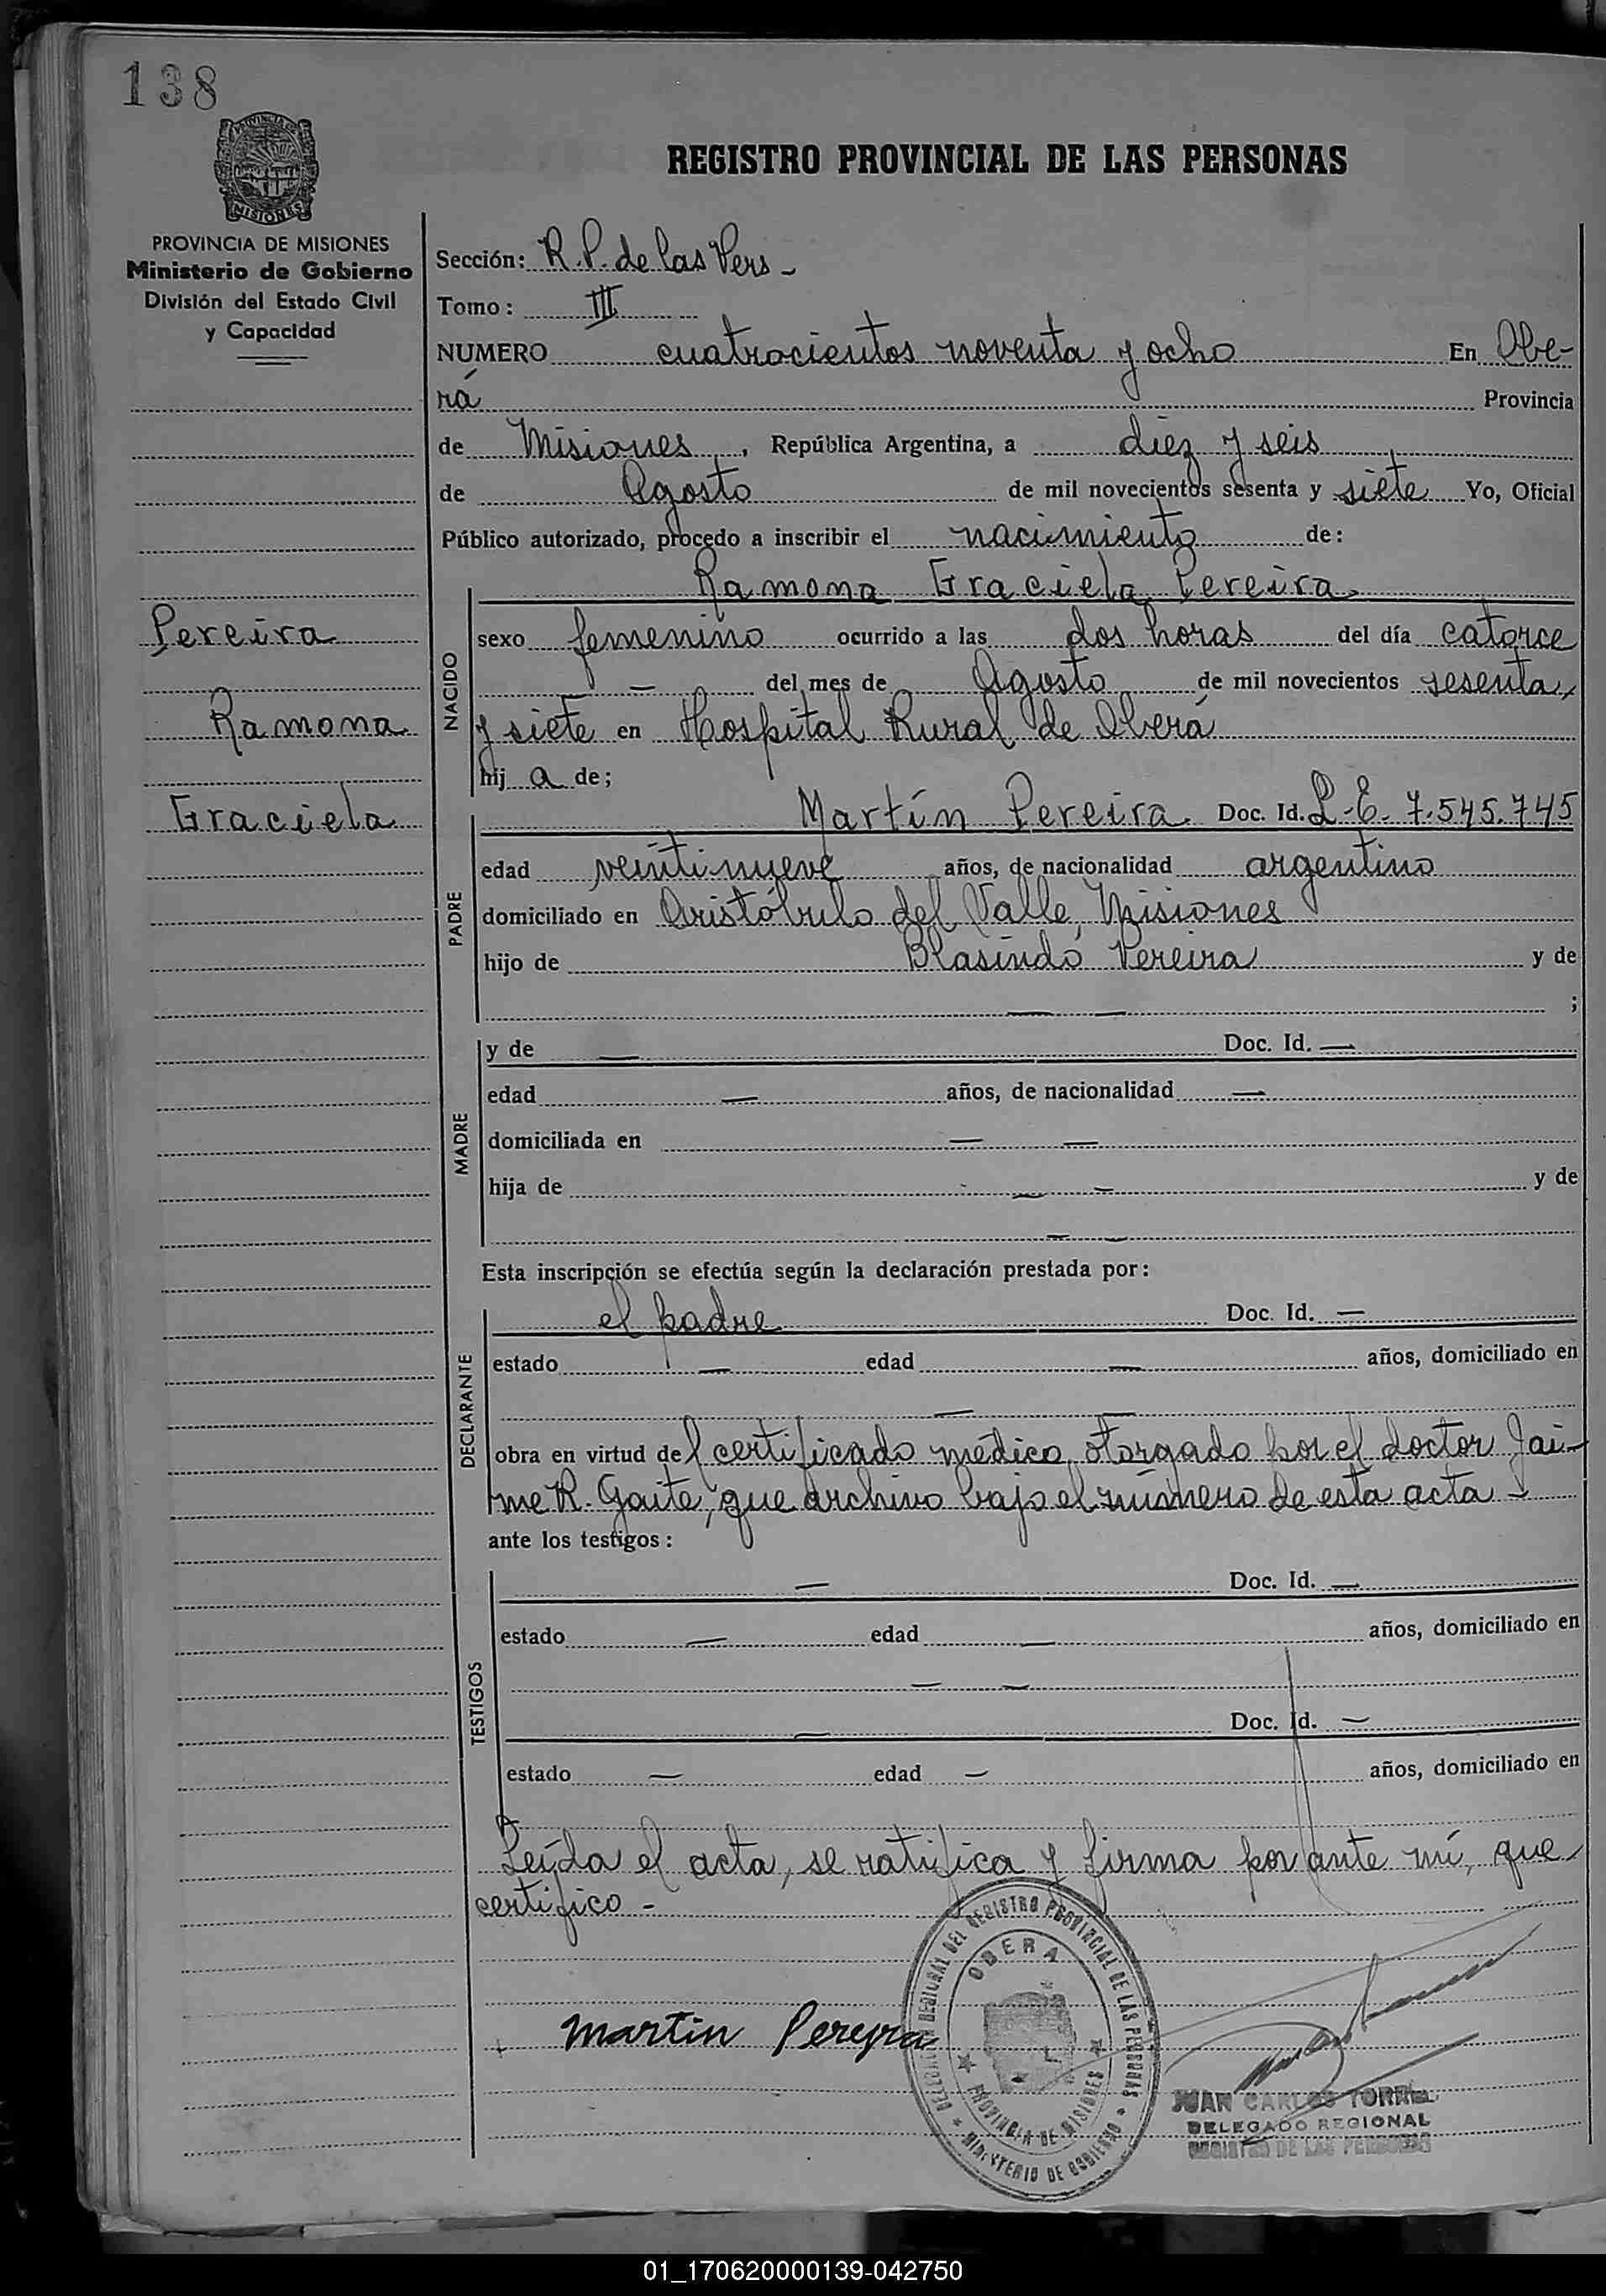 138
PROVINCIA DE
MISIONES
REGISTRO PROVINCIAL DE LAS PERSONAS
PROVINCIA DE MISIONES
Ministerio de Gobierno
División del Estado Civil
y Capacidad
Pereira
Ramona
Graciela
Sección: R.P. de las Pers -
Tomo: III
NUMERO cuatrocientos noventa y ocho En Obe-
rá Provincia
de Misiones, República Argentina, a diez y seis
de Agosto de mil novecientos sesenta y siete Yo, Oficial
Público autorizado, procedo a inscribir el nacimiento de:
NACIDO
Ramona Graciela Pereira
sexo femenino ocurrido a las dos horas del día catorce
— del mes de Agosto de mil novecientos sesenta
y siete en Hospital Rural de Oberá
hij a de;
PADRE
Martín Pereira Doc. Id. L.E. 7.545.745
edad veintinueve años, de nacionalidad argentino
domiciliado en Aristóbulo del Valle, Misiones
hijo de Blasindo Pereira y de
— — ;
MADRE
y de — Doc. Id. —
edad — años, de nacionalidad —
domiciliada en — —
hija de — — y de
— —
Esta inscripción se efectúa según la declaración prestada por:
DECLARANTE
el padre Doc. Id. —
estado — edad — años, domiciliado en
— —
obra en virtud del certificado médico otorgado por el doctor Jai-
me R. Gaite, que archivo bajo el número de esta acta -
ante los testigos:
TESTIGOS
— Doc. Id. —
estado — edad — años, domiciliado en
— —
— Doc. Id. —
estado — edad — años, domiciliado en
Leída el acta, se ratifica y firma por ante mí, que
certifico -
Martin Pereyra
DELEGACION REGIONAL DEL REGISTRO PROVINCIAL DE LAS PERSONAS
OBERA
PROVINCIA DE MISIONES
MINISTERIO DE GOBIERNO
JUAN CARLOS TORRES
DELEGADO REGIONAL
REGISTRO DE LAS PERSONAS
01_170620000139-042750